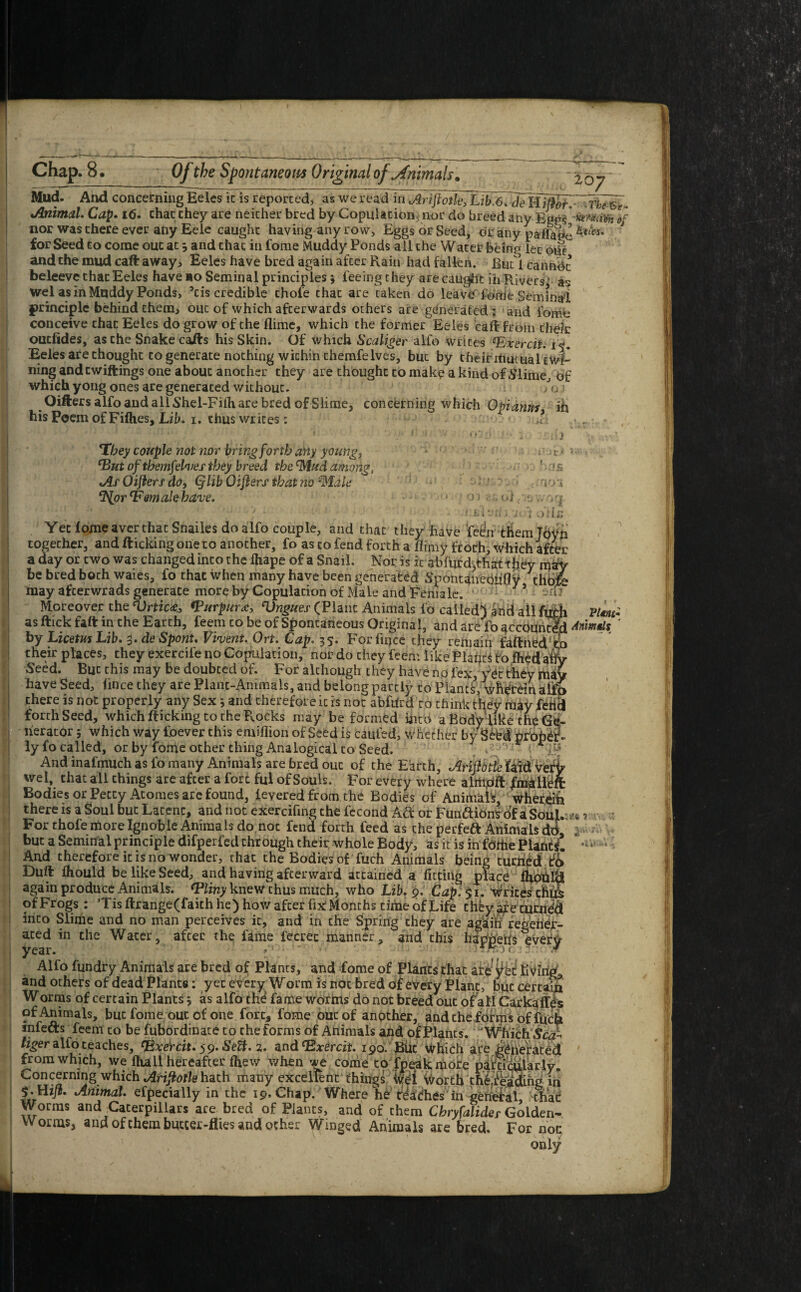 Chap. 8. Of the Spontaneous Original of Animals. 207
Mud. And concerning Eeles it is reported, as we read in Aristotle, Lib. 6. de Histor.
Animal. Cap. 16. that they are neither bred by Copulation, nor do breed any Eggs,
nor was there ever any Eele caught having any row, Eggs or Seed, or any passage
for Seed to come out at; and that in some Muddy Ponds all the Water being let out,
and the mud cast away, Eeles have bred again after Rain had fallen. But I cannot
beleeve that Eeles have no Seminal principles; seeing they are caught in Rivers; as
wel as in Muddy Ponds, 'tis credible those that are taken do leave some Seminal
principle behind them, out of which afterwards others are generated; and some
conceive that Eeles do grow of the slime, which the former Eeles cast from their
outsides, as the Snake casts his Skin. Of which Scaliger also writes Exercit.
Eeles are thought to generate nothing within themselves, but by their mutual twi-
ning and twistings one about another they are thought to make a kind of Slime, of
which yong ones are generated without.
Oisters also and all Shel-Fish are bred of Slime, concerning which Opianus, in
his Poem of Fishes, Lib. 1. thus writes:
They couple not nor bring forth any young,
But of themselves they breed the Mud among,
As Oisters do, Glib Oisters that no Male
Nor Female have.
Yet some aver that Snailes do also couple, and that they have seen them Joyn
together, and sticking one to another, so as to send forth a slimy froth, which after
a day or two was changed into the shape of a Snail. Nor is it absurd, that they may
be bred both waies, so that when many have been generated Spontaneously, those
may afterwrads generate more by Copulation of Male and Female.
Moreover the Urticæ, Purpuræ, Ungues (Plant Animals so called) and all such
as stick fast in the Earth, seem to be of Spontaneous Original, and are so accounted
by Licetus Lib. 3. de Spont. Vivent. Ort. Cap. 35. For since they remain fastned to
their places, they exercise no Copulation, nor do they seem like Plants to shed any
Seed. But this may be doubted of. For although they have no sex, yet they may
have Seed, since they are Plant-Animals, and belong partly to Plants, wherein also
there is not properly any Sex; and therefore it is not absurd to think they may send
forth Seed, which sticking to the Rocks may be formed into a Body like the Ge-
nerator; which way soever this emission of Seed is caused, whether by Seed proper-
ly so called, or by some other thing Analogical to Seed.
And inasmuch as so many Animals are bred out of the Earth, Aristotle said very
wel, that all things are after a sort ful of Souls. For every where almost smallest
Bodies or Petty Atomes are found, severed from the Bodies of Animals, wherein
there is a Soul but Latent, and not exercising the second Act or Functions of a Soul.
For those more Ignoble Animals do not send forth seed as the perfect Animals do,
but a Seminal principle dispersed through their whole Body, as it is in some Plants.
And therefore it is no wonder, that the Bodies of such Animals being turned to
Dust should be like Seed, and having afterward attained a fitting place should
again produce Animals. Pliny knew thus much, who Lib. 9. Cap. 51. writes thus
of Frogs: 'Tis strange (saith he) how after six Months time of Life they are turned
into Slime and no man perceives it, and in the Spring they are again regener-
ated in the Water, after the same secret manner, and this happens every
year.
Also sundry Animals are bred of Plants, and some of Plants that are yet living,
and others of dead Plants: yet every Worm is not bred of every Plant, but certain
Worms of certain Plants; as also the same worms do not breed out of all Carkasses
of Animals, but some out of one sort, some out of another, and the forms of such
insects seem to be subordinate to the forms of Animals and of Plants. Which Sca-
liger also teaches, Exercit. 59. Sect. 2. and Exercit. 190. But which are generated
from which, we shall hereafter shew when we come to speak more particularly.
Concerning which Aristotle hath many excellent things wel worth the reading in
5. Hist. Animal. especially in the 19. Chap. Where he teaches in general, that
Worms and Caterpillars are bred of Plants, and of them Chrysalides Golden-
Worms, and of them butter-flies and other Winged Animals are bred. For not
only
The Ge-
neration of
Eeles.
Plant-
Animals